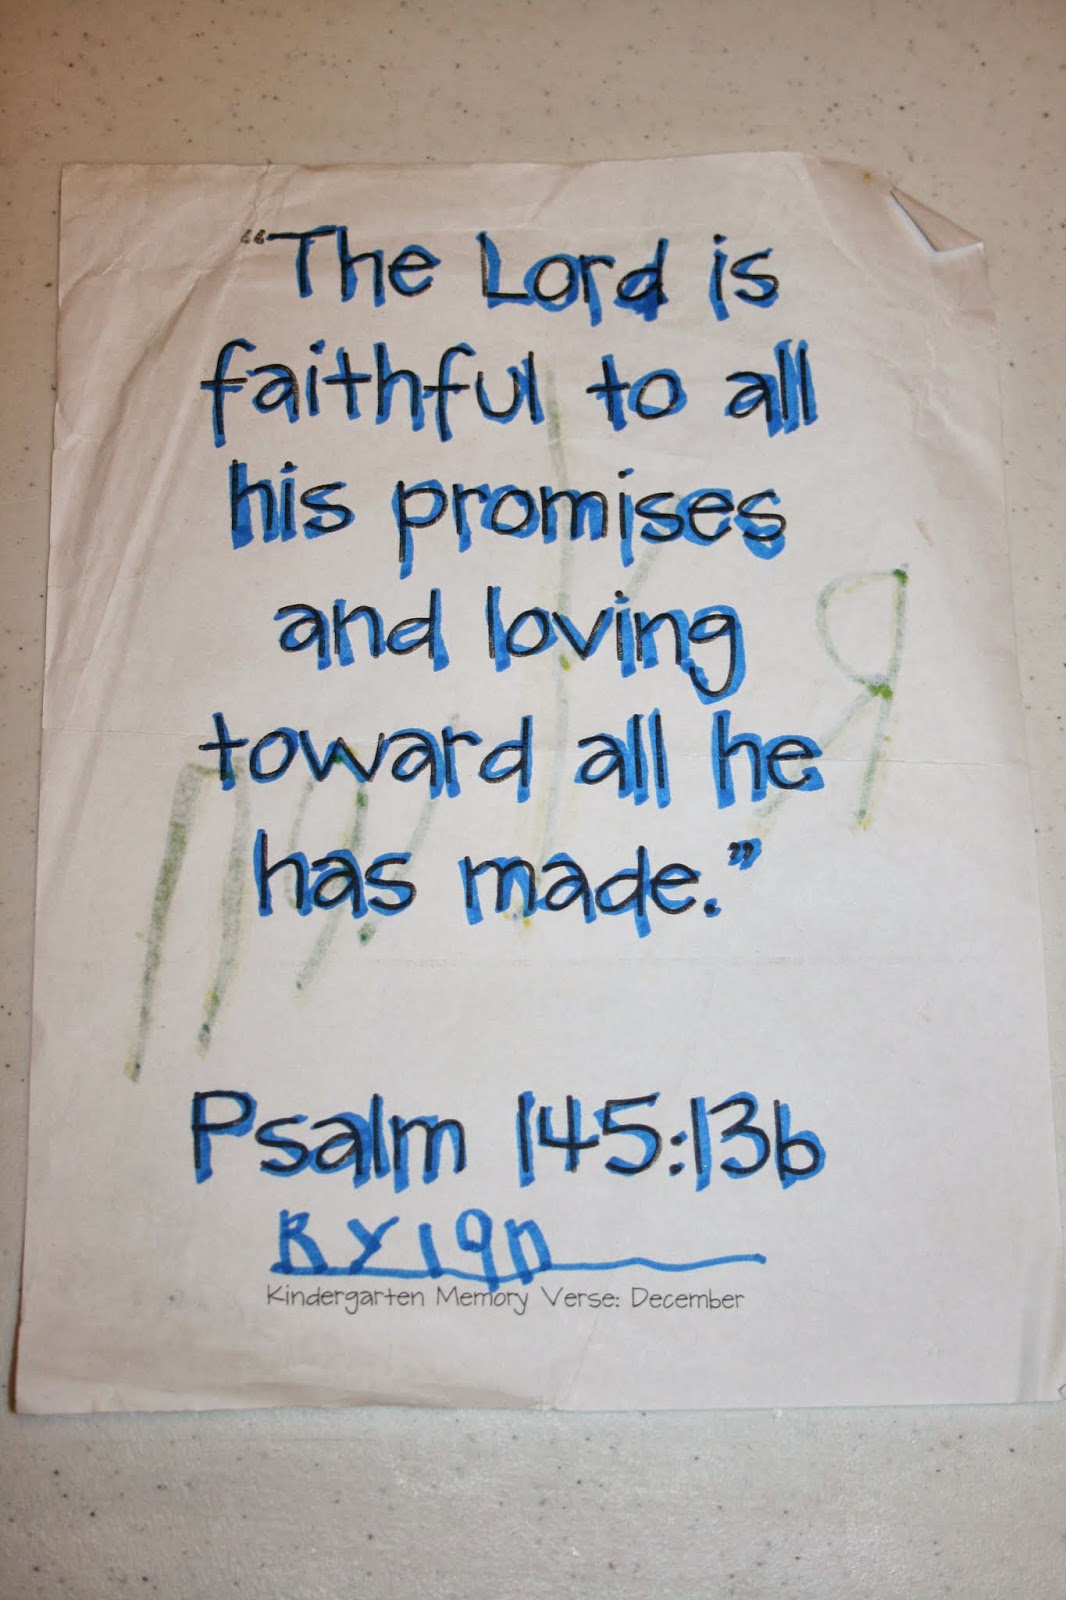 “The Lord is
faithful to all
his promises
and loving
toward all he
has made.”
Psalm 145:13b
Ryian
Kindergarten Memory Verse: December